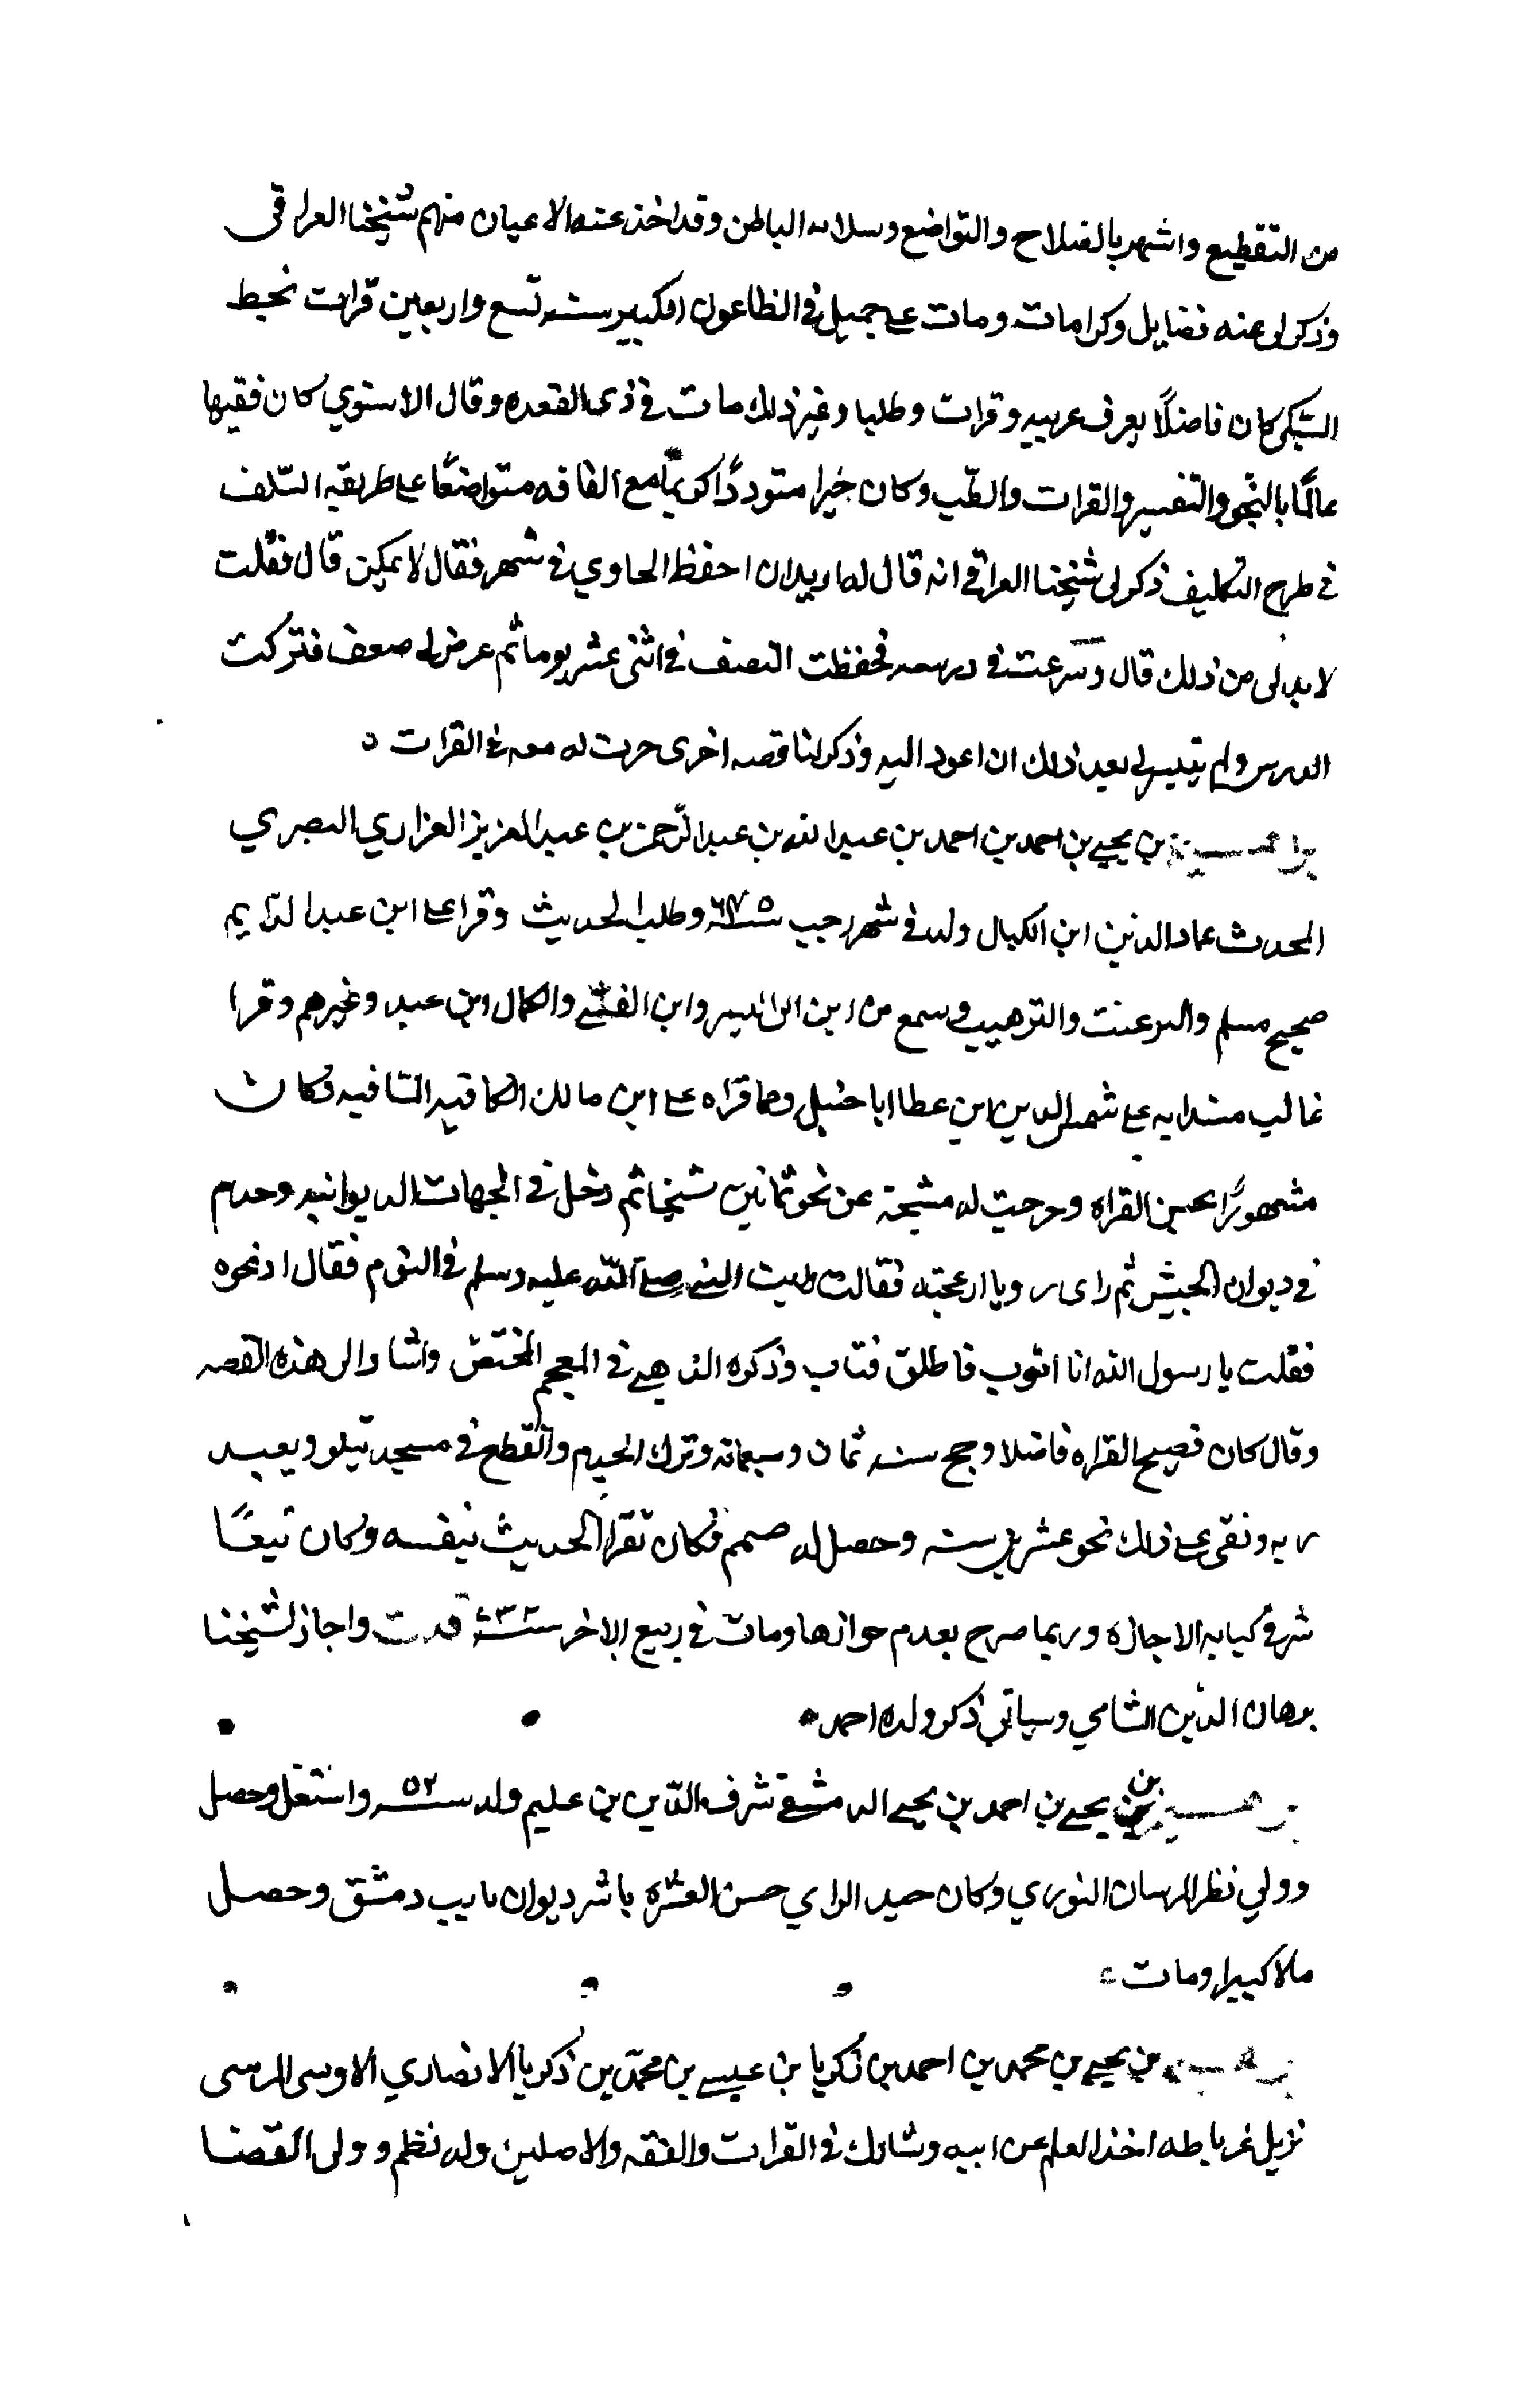 من التقطيع واشهر بالصلاح والتواضع وسلامه الباطن وقد اخذ عنه الاعيان منهم شيخنا العراقى
وذكر لى عنه فضايل وكرامات ومات على جميل في الطاعون الكبير سنه تسع واربعين قرات بخط
السبكى كان فاضلًا يعرف عربيه وقرات وطلبا وغير ذلك مات في ذى القعده وقال الاسنوي كان فقيها
عالمًا بالنحو والتفسير والقرات والطب وكان خيرا متوددًا كريمًا مع الفاقه متواضعًا على طريقه السلف
في طرح التكليف ذكر لى شيخنا العراقي انه قال له اريد ان احفظ الحاوي في شهر فقال لا يمكن قال فقلت
لا بد لى من ذلك قال وشرعت في درسه فحفظت النصف في اثنى عشر يوما ثم عرض لى ضعف فتركت
الدرس ولم يتيسر لى بعد ذلك ان اعود اليه وذكر لنا قصه اخرى جرت له معه في القرات
بن يحيى بن احمد بن احمد بن عبد الله بن عبد الرحمن بن عبد العزيز العزاري البصري
المحدث عماد الدين ابن الكيال ولد في شهر رجب سنة ٦٧٥ وطلب الحديث وقرا على ابن عبد الدايم
صحيح مسلم والترغيب والترهيب وسمع من ابن ابى اليسر وابن والكمال ابن عبد وغيرهم وقرا
غالب مسند ابه على شمس الدين ابن عطا ابا حنبل ومما قراه على ابن مالك الكافيه الشافيه وكان
مشهورًا بحسن القراه وخرجت له مشيخة عن نحو ثمانين شيخا ثم دخل في الجهات الديوانيه وخدم
في ديوان الجيش ثم راى رويا ازعجته فقالت رايت النبى صلى الله عليه وسلم في النوم فقال ا دنحوه
فقلت يا رسول الله انا اتوب فاطلق فتاب وذكره الذهبي في المعجم المختص واشار الى هذه القصه
وقال كان فصيح القراه فاضلا وحج سنه ثمان وسبعمائه وترك الخدم وانقطع في مسجد يتلو ويعبد
ربه وبقى على ذلك نحو عشرين سنه وحصل له صمم فكان يقرا الحديث بنفسه وكان تبعًا
شرفي كتابه الاجازه وربما صرح بعدم جوازها ومات في ربيع الاخر سنة ٧٣٢ قدت واجاز لشيخنا
برهان الدين الشامي وسياتي ذكر ولده احمد
بن يحيى بن احمد بن يحيى الدمشقي شرف الدين بن عليم ولد سنه ٥٢ واشتغل وحصل
وولي نظر المرستان النوري وكان جيد الراي حسن العشره باشر ديوان نايب دمشق وحصل
مالا كبيرا ومات
بن يحيى بن محمد بن احمد بن زكريا بن عيسى بن محمد بن زكريا الانصاري الاوسى المرسى
نزيل غرناطه اخذ العلم عن ابيه وشارك في القرات والفقه والاصلين وله نظم وولى القضا